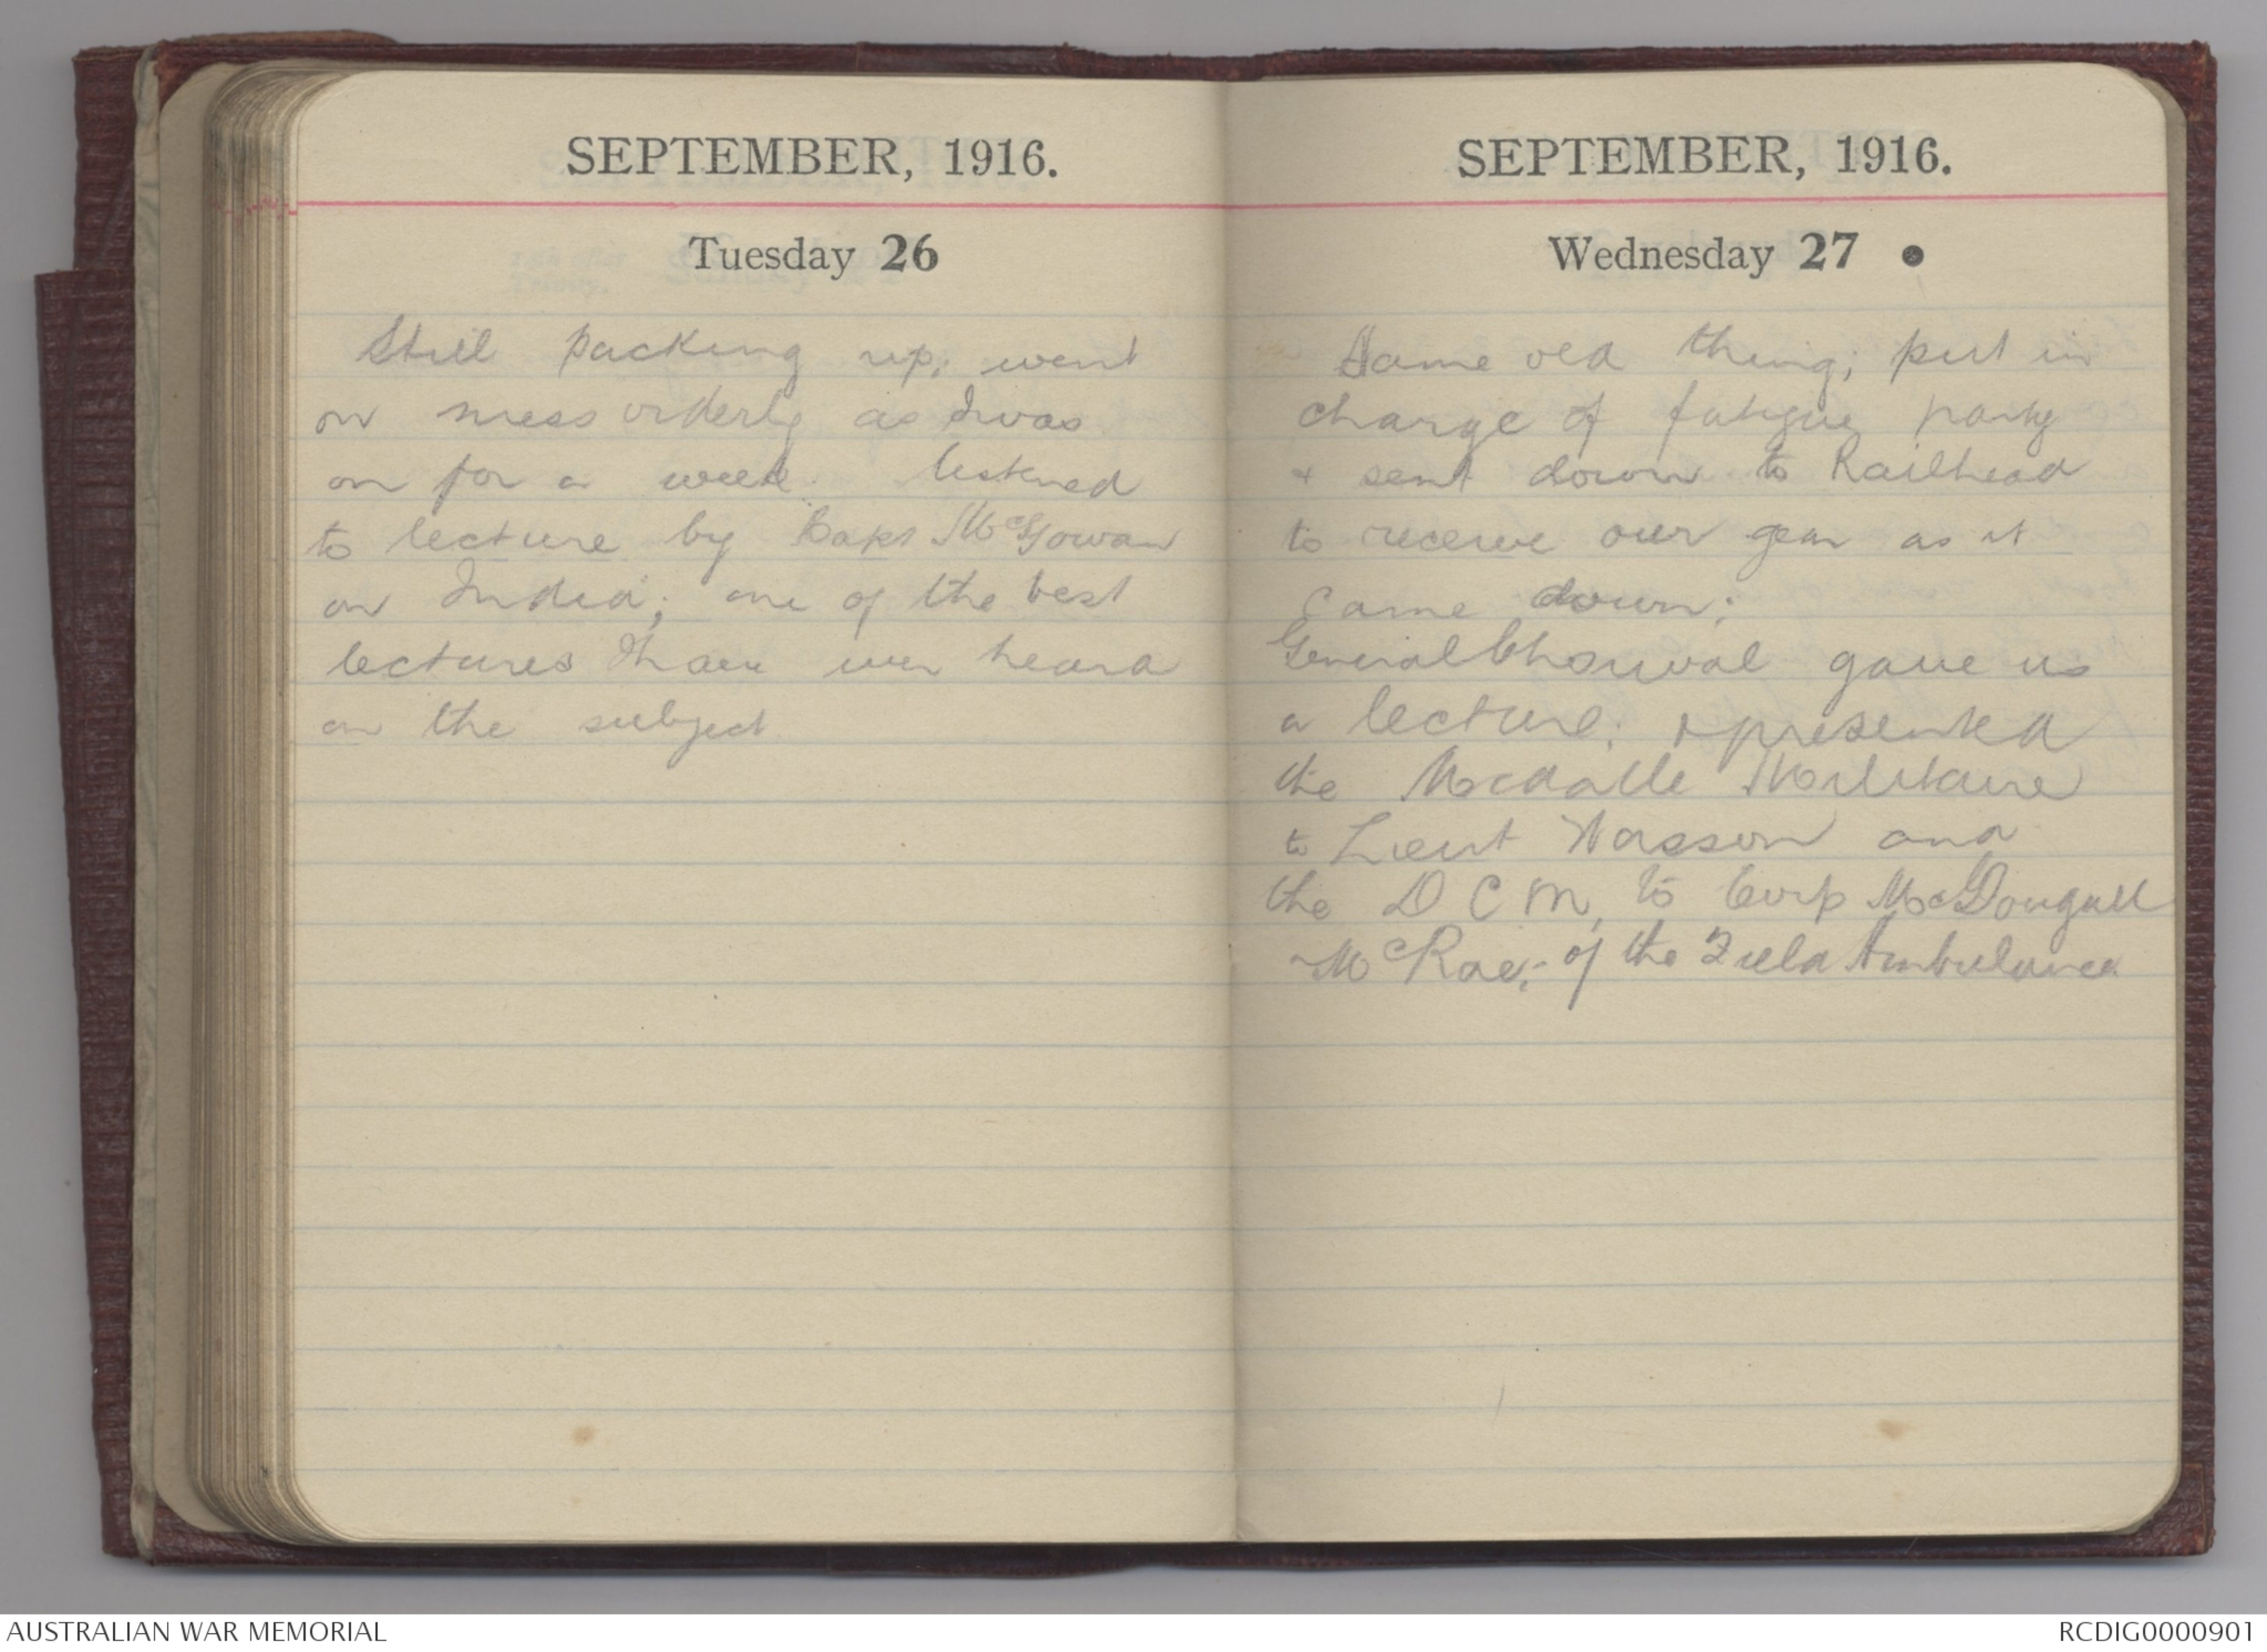 SEPTEMBER, 1916.
Tuesday 26
Still packing up; went
on mess orderly as I was
on for a week. listened
to lecture by Capt McGowan
on India; one of the best
lectures I have ever heard
on the subject
SEPTEMBER, 1916.
Wednesday 27 ●
Same old thing; put in
charge of fatigue party
+ sent down to Railhead
to receive our gear as it
came down;
General Chauval gave us
a lecture; + presented
the Medalle Militaire
to Lieut Wasson and
the D C M, to Corp McDougall
McRae; of the Field Ambulance
AUSTRALIAN WAR MEMORIAL
RCDIG0000901